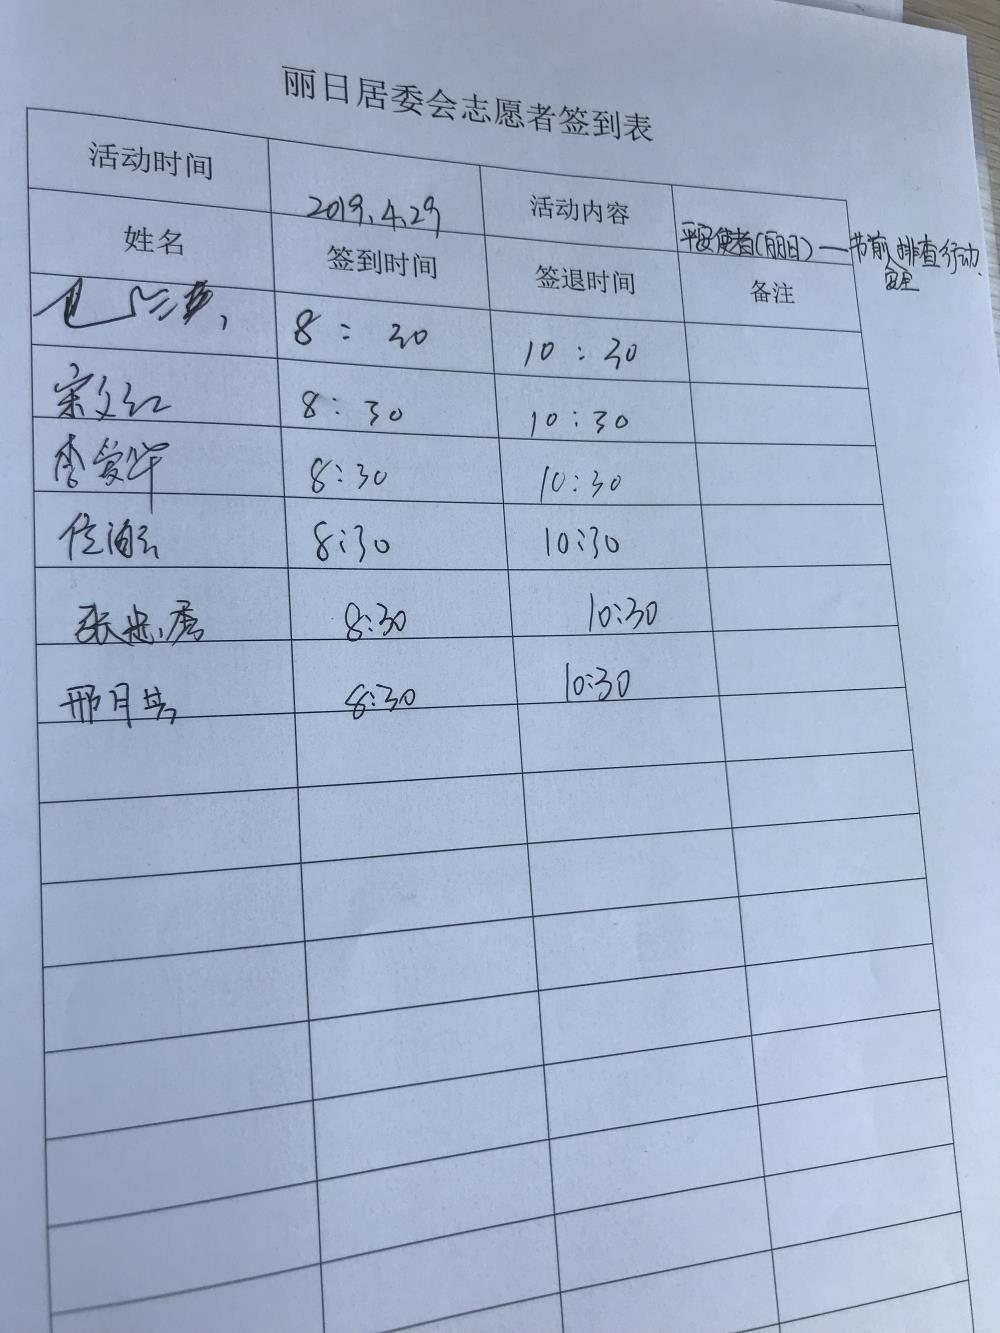 丽日居委会志愿者签到表
活动时间 2019.4.29 活动内容 平安使者(丽日)——节前安全排查行动
姓名 签到时间 签退时间 备注
8:30 10:30
宋文红 8:30 10:30
李爱华 8:30 10:30
8:30 10:30
张忠秀 8:30 10:30
邢月芳 8:30 10:30